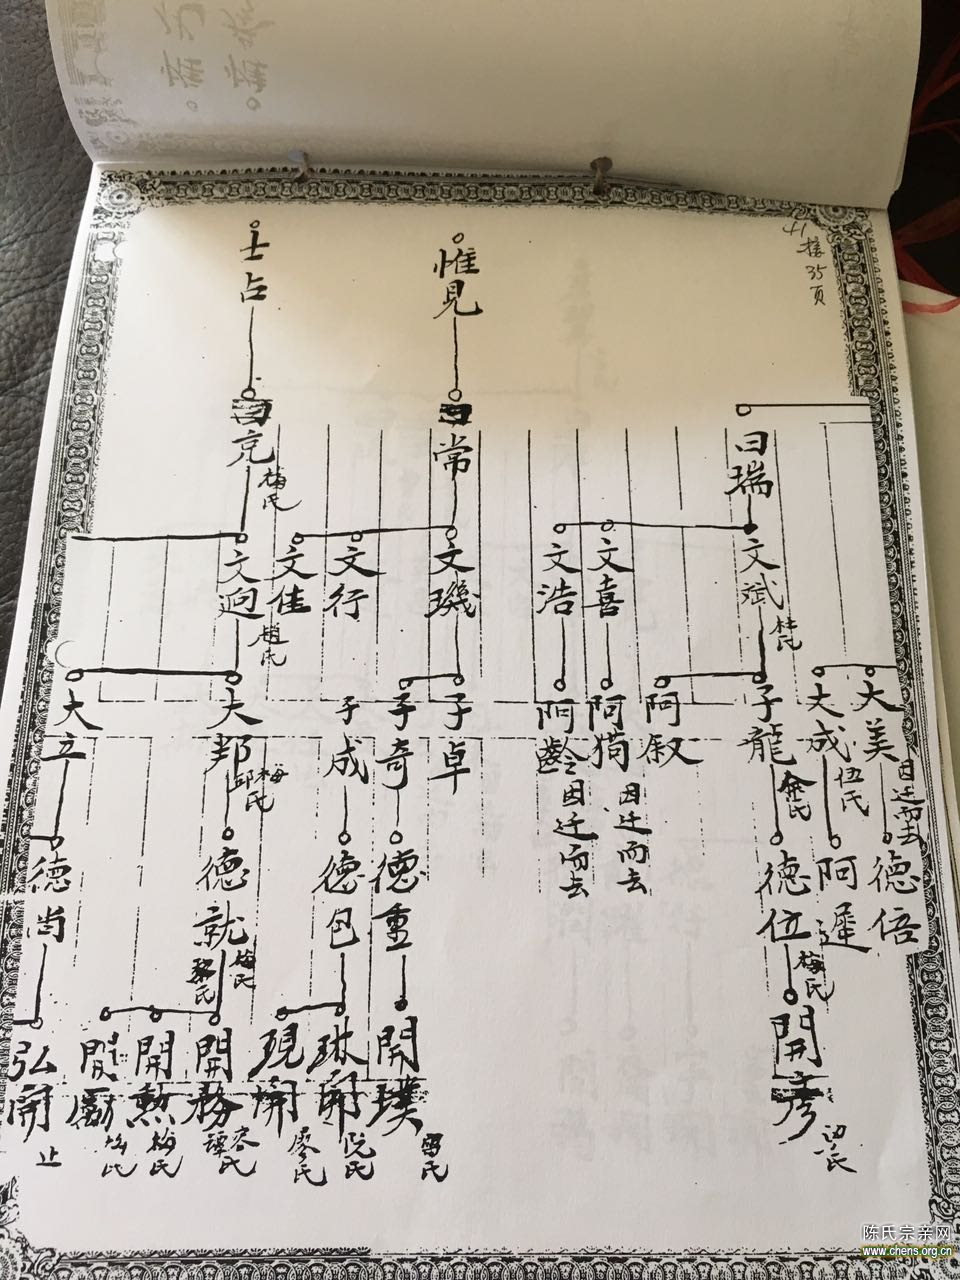 41
接35頁
惟見
士占
曰瑞
曰常
曰克
梅氏
文斌
杜氏
文喜
文浩
文璣
文行
文佳
文迥
趙氏
大美
因迁而去
大成
伍氏
子龍
余氏
阿叙
阿獨
因迁而去
阿齡
因迁而去
子卓
子奇
子成
大邦
邱氏
梅氏
大立
德倍
阿遲
德位
梅氏
德重
德包
德就
梅氏
黎氏
德尚
開彥
開璞
雷氏
琳開
阮氏
現開
廖氏
開務
容氏
譚氏
開勲
梅氏
開勵
梅氏
弘開
止
陈氏宗亲网
www.chens.org.cn